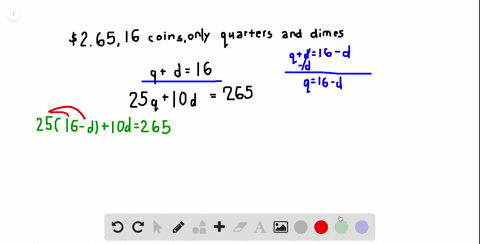 $2.65, 16 coins, only quarters and dimes
q+d=16
25q+10d=265
q+d=16-d
-d
q=16-d
25(16-d)+10d=265